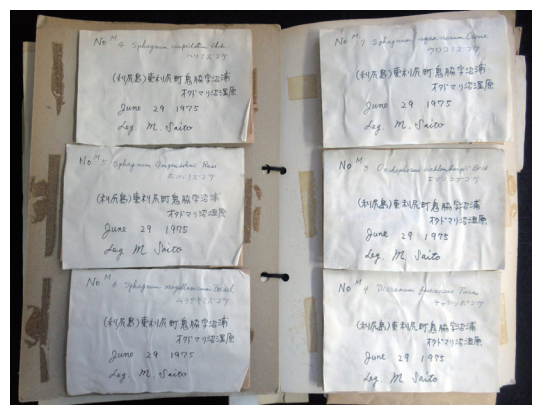 No M 4 Sphagnum cuspidatum Ehrh
ハリミズゴケ
(利尻島)東利尻町鬼脇字沼浦
オタドマリ沼湿原
June 29 1975
Leg. M. Saito
No M 5 Sphagnum Girgensohnii Russ
ホソバミズゴケ
(利尻島)東利尻町鬼脇字沼浦
オタドマリ沼湿原
June 29 1975
Leg. M Saito
No M 6 Sphagnum magellanicum Brid
ムラサキミズゴケ
(利尻島)東利尻町鬼脇字沼浦
オタドマリ沼湿原
June 29 1975
Leg. M. Saito
No M 7 Sphagnum squarrosum Crome
ウロコミズゴケ
(利尻島)東利尻町鬼脇字沼浦
オタドマリ沼湿原
June 29 1975
Leg. M. Saito
No M 8 Wahlenbergii Brid
(利尻島)東利尻町鬼脇字沼浦
オタドマリ沼湿原
June 29 1975
Leg. M. Saito
No M 9 Dicranum
(利尻島)東利尻町鬼脇字沼浦
オタドマリ沼湿原
June 29 1975
Leg. M. Saito